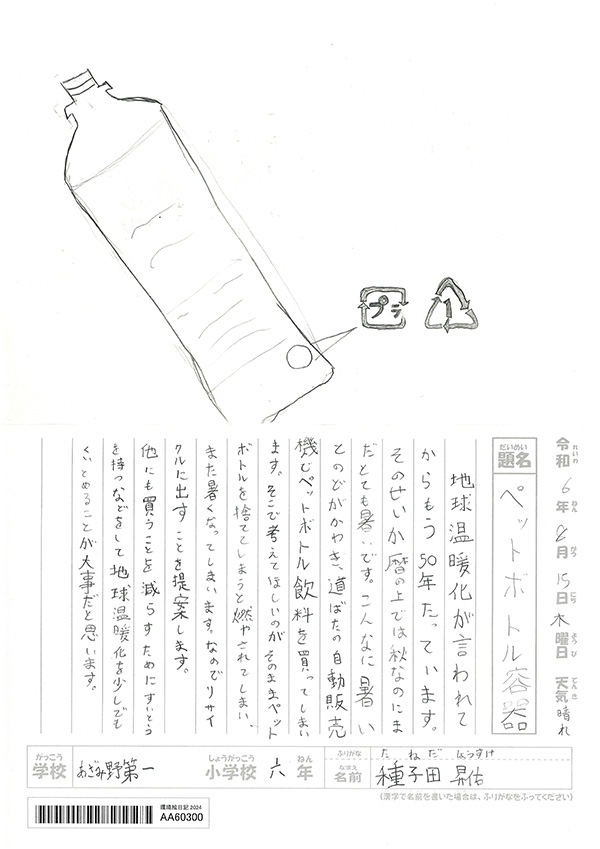 プラ
1
令和6年8月15日木曜日 天気 晴れ
れいわ ねん がつ にち ようび てんき
だいめい
題名
ペットボトル容器
地球温暖化が言われて
からもう50年たっています。
そのせいか暦の上では秋なのにま
だとても暑いです。こんなに暑い
とのどがかわき、道ばたの自動販売
機でペットボトル飲料を買ってしまい
ます。そこで考えてほしいのがそのままペット
ボトルを捨ててしまうと燃やされてしまい、
また暑くなってしまいます。なのでリサイ
クルに出すことを提案します。
他にも買うことを減らすためにすいとう
を持つなどをして地球温暖化を少しでも
くいとめることが大事だと思います。
がっこう しょうがっこう ねん ふりがな たねだ しょうすけ
学校 あざみ野第一 小学校 六 年 なまえ 名前 種子田 昇佑
(漢字で名前を書いた場合は、ふりがなをふってください)
環境絵日記 2024
AA60300